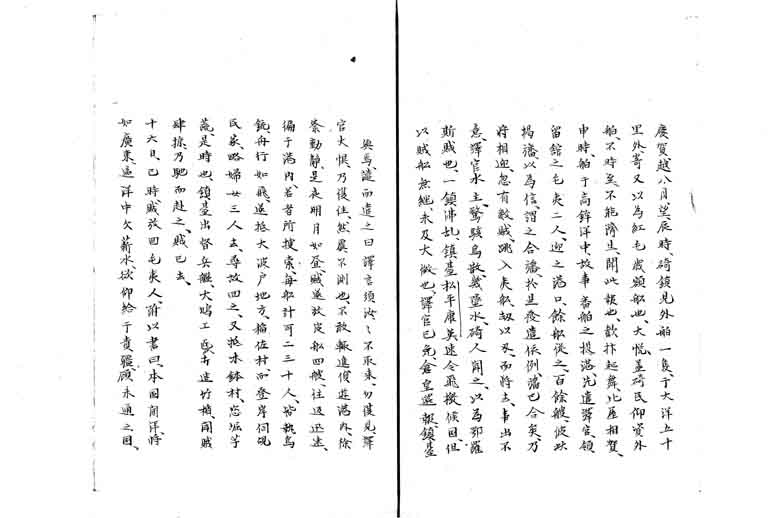 慶賀越八月望、辰時、碕鎮見外船一隻于大洋五十
里外、寄又以為紅毛歳額船也、大慌、蓋碕民仰資外
舶、不時至、不能濟生、聞此報也、歡抃起舞、比屋相賀、
申時、舶于高鉾洋中、故事、番舶之投港、先遣譯官、領
留館之毛夷二人、迎之港口、餘船從之、百餘艘、彼趺
揭旛以為信、謂之合旛、於是發遣依例、旛已合矣、乃
將相迎、忽有數賊、跳入夷船、劫以刃、而將去、事出不
意、譯官水主驚駭鳥散、幾墮水、碕人聞之、以為鄂羅
斯賊也、一鎮沸乱、鎮臺松平康英速令飛撥候因、但
以賊船底絶、未及大做也、譯官已免、倉皇還報、鎮臺
與焉、灑而遣之曰、譯言須汝、汝不取來、勿復見、譯
官大惧、乃復往、然莫不測也、不敢輒進、復遊港內、除
察動靜、是夜明月如昼、賊遂放炭船四艘、往返迅速、
徧于港內、若有所搜索、每船計可二三十人、皆執鳥
銃、舟行如飛、遂抵大波戶地方、稲佐村、而登岸、伺硯
民家、略婦女三人去、尋放回之、又抵水鉢村、岩垢等
蕪、是時也、鎮臺出督兵艦、大鳩工匠、南造竹橋、聞賊
肆掠、乃馳而赴之、賊已去、
十六日、巳時、賊放回毛夷人、附以書曰、本國商洋、将
如廣東、這洋中欠薪水、欲仰給于貴疆、顧未通之国、